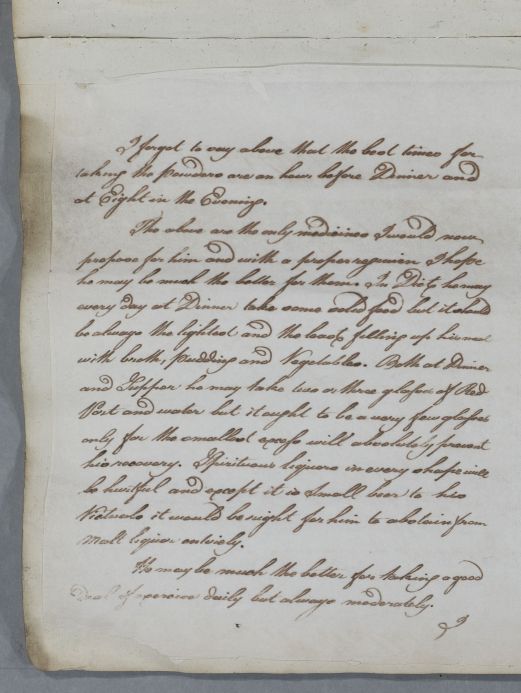 I forgot to say above that the best times for
taking the Powders are an hour before Dinner and
at Eight in the Evening.
The above are the only medicines I would now
propose for him and with a proper regimen I hope
he may be much the better for them. In Diet, he may
every day at Dinner take some solid food but it should
be always the lightest and the least, filling up his meal
with broth, Pudding and Vegetables. Both at Dinner
and Supper he may take two or three glasses of Red
Port and water but it ought to be a very few glasses
only for the smallest excess will absolutely prevent
his recovery. Spirituous liquors in every shape will
be hurtful and except it is Small beer to his
Victuals it would be right for him to abstain from
Malt liquor entirely.
He may be much the better for taking a good
Deal of exercise daily but always moderately.
I